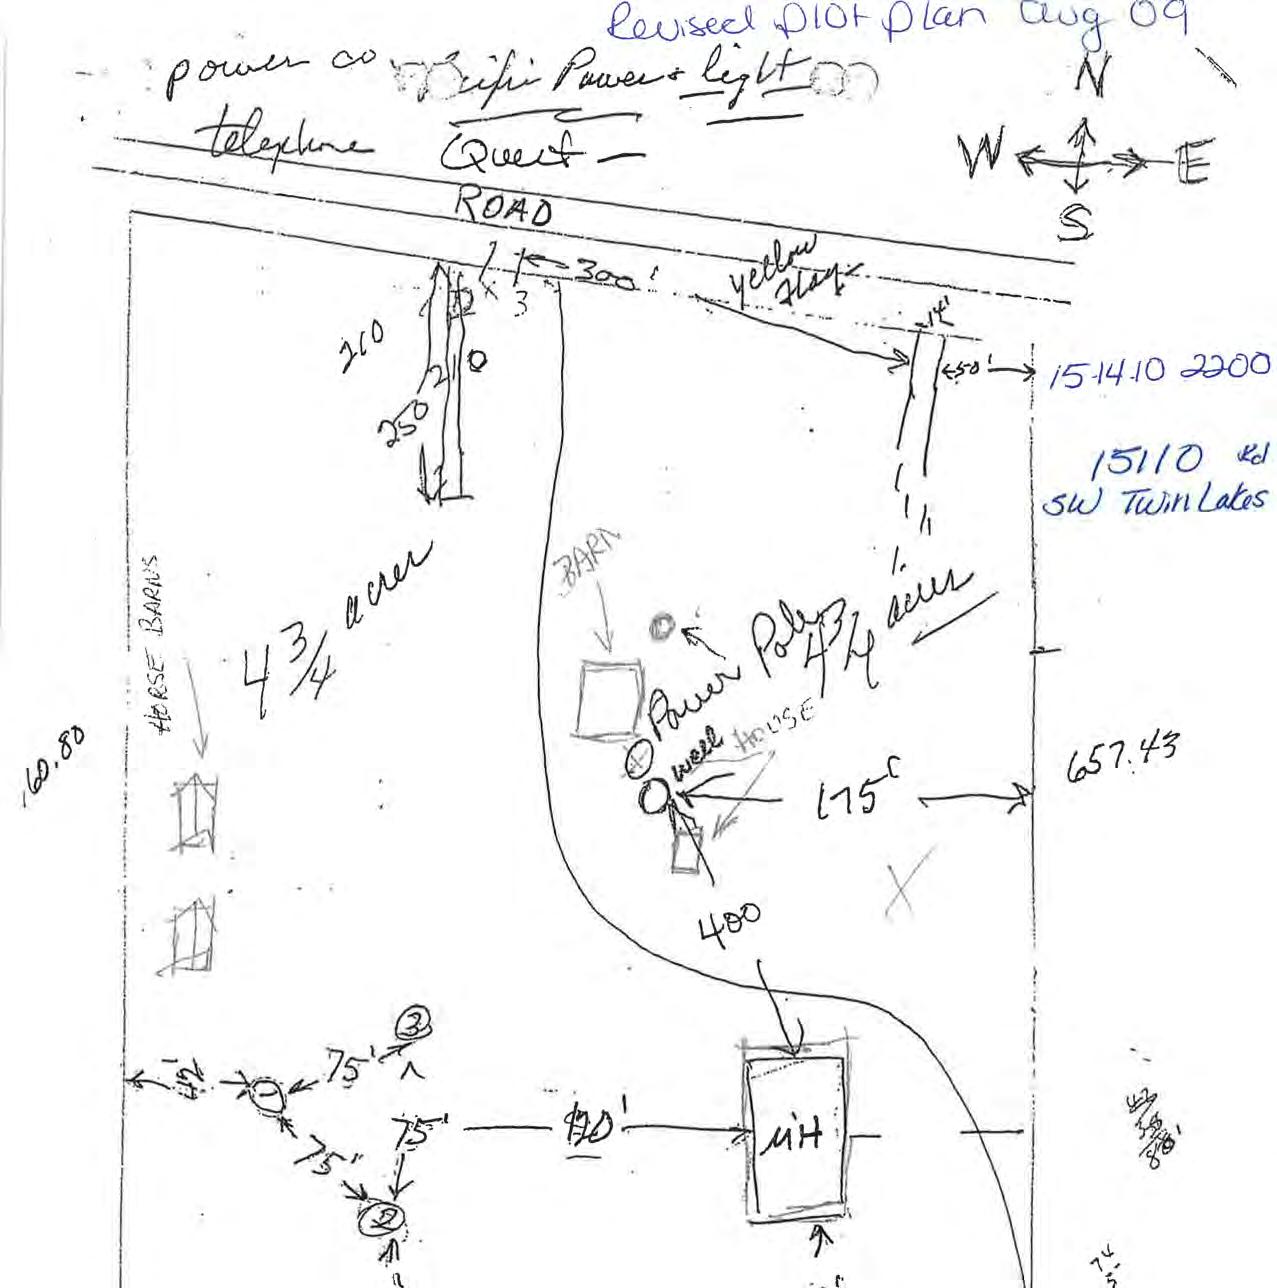 Revised plot plan Aug 09
power co Pacific Power & light
telephone Quest —
ROAD
N
W E
S
300'
3
yellow flag
14'
50'
15-14-10 2200
210
210
250
15110 Rd
SW Twin Lakes
BARN
HORSE BARNS
4 3/4 acres
Power Pole
4 3/4 acres
well HOUSE
175'
657.43
60.80
X
400
3
75'
42'
1
75'
75'
2
MH